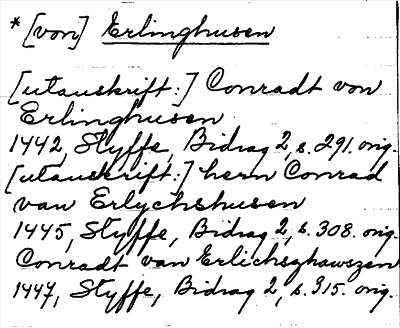 * [von] Erlinghusen
[utanskrift:] Conradt von
Erlinghusen
1442, Styffe, Bidrag 2, s. 291. orig.
[utanskrift:] hern Conrad
van Erlychshusen
1445, Styffe, Bidrag 2, s. 308. orig.
Conradt van Erlichszhawszen
1447, Styffe, Bidrag 2, s. 315. orig.